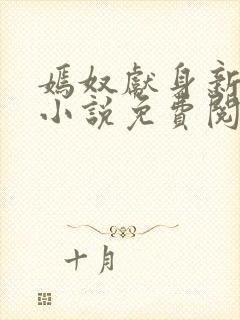 嫣奴獻身新
小說免費閱
十月